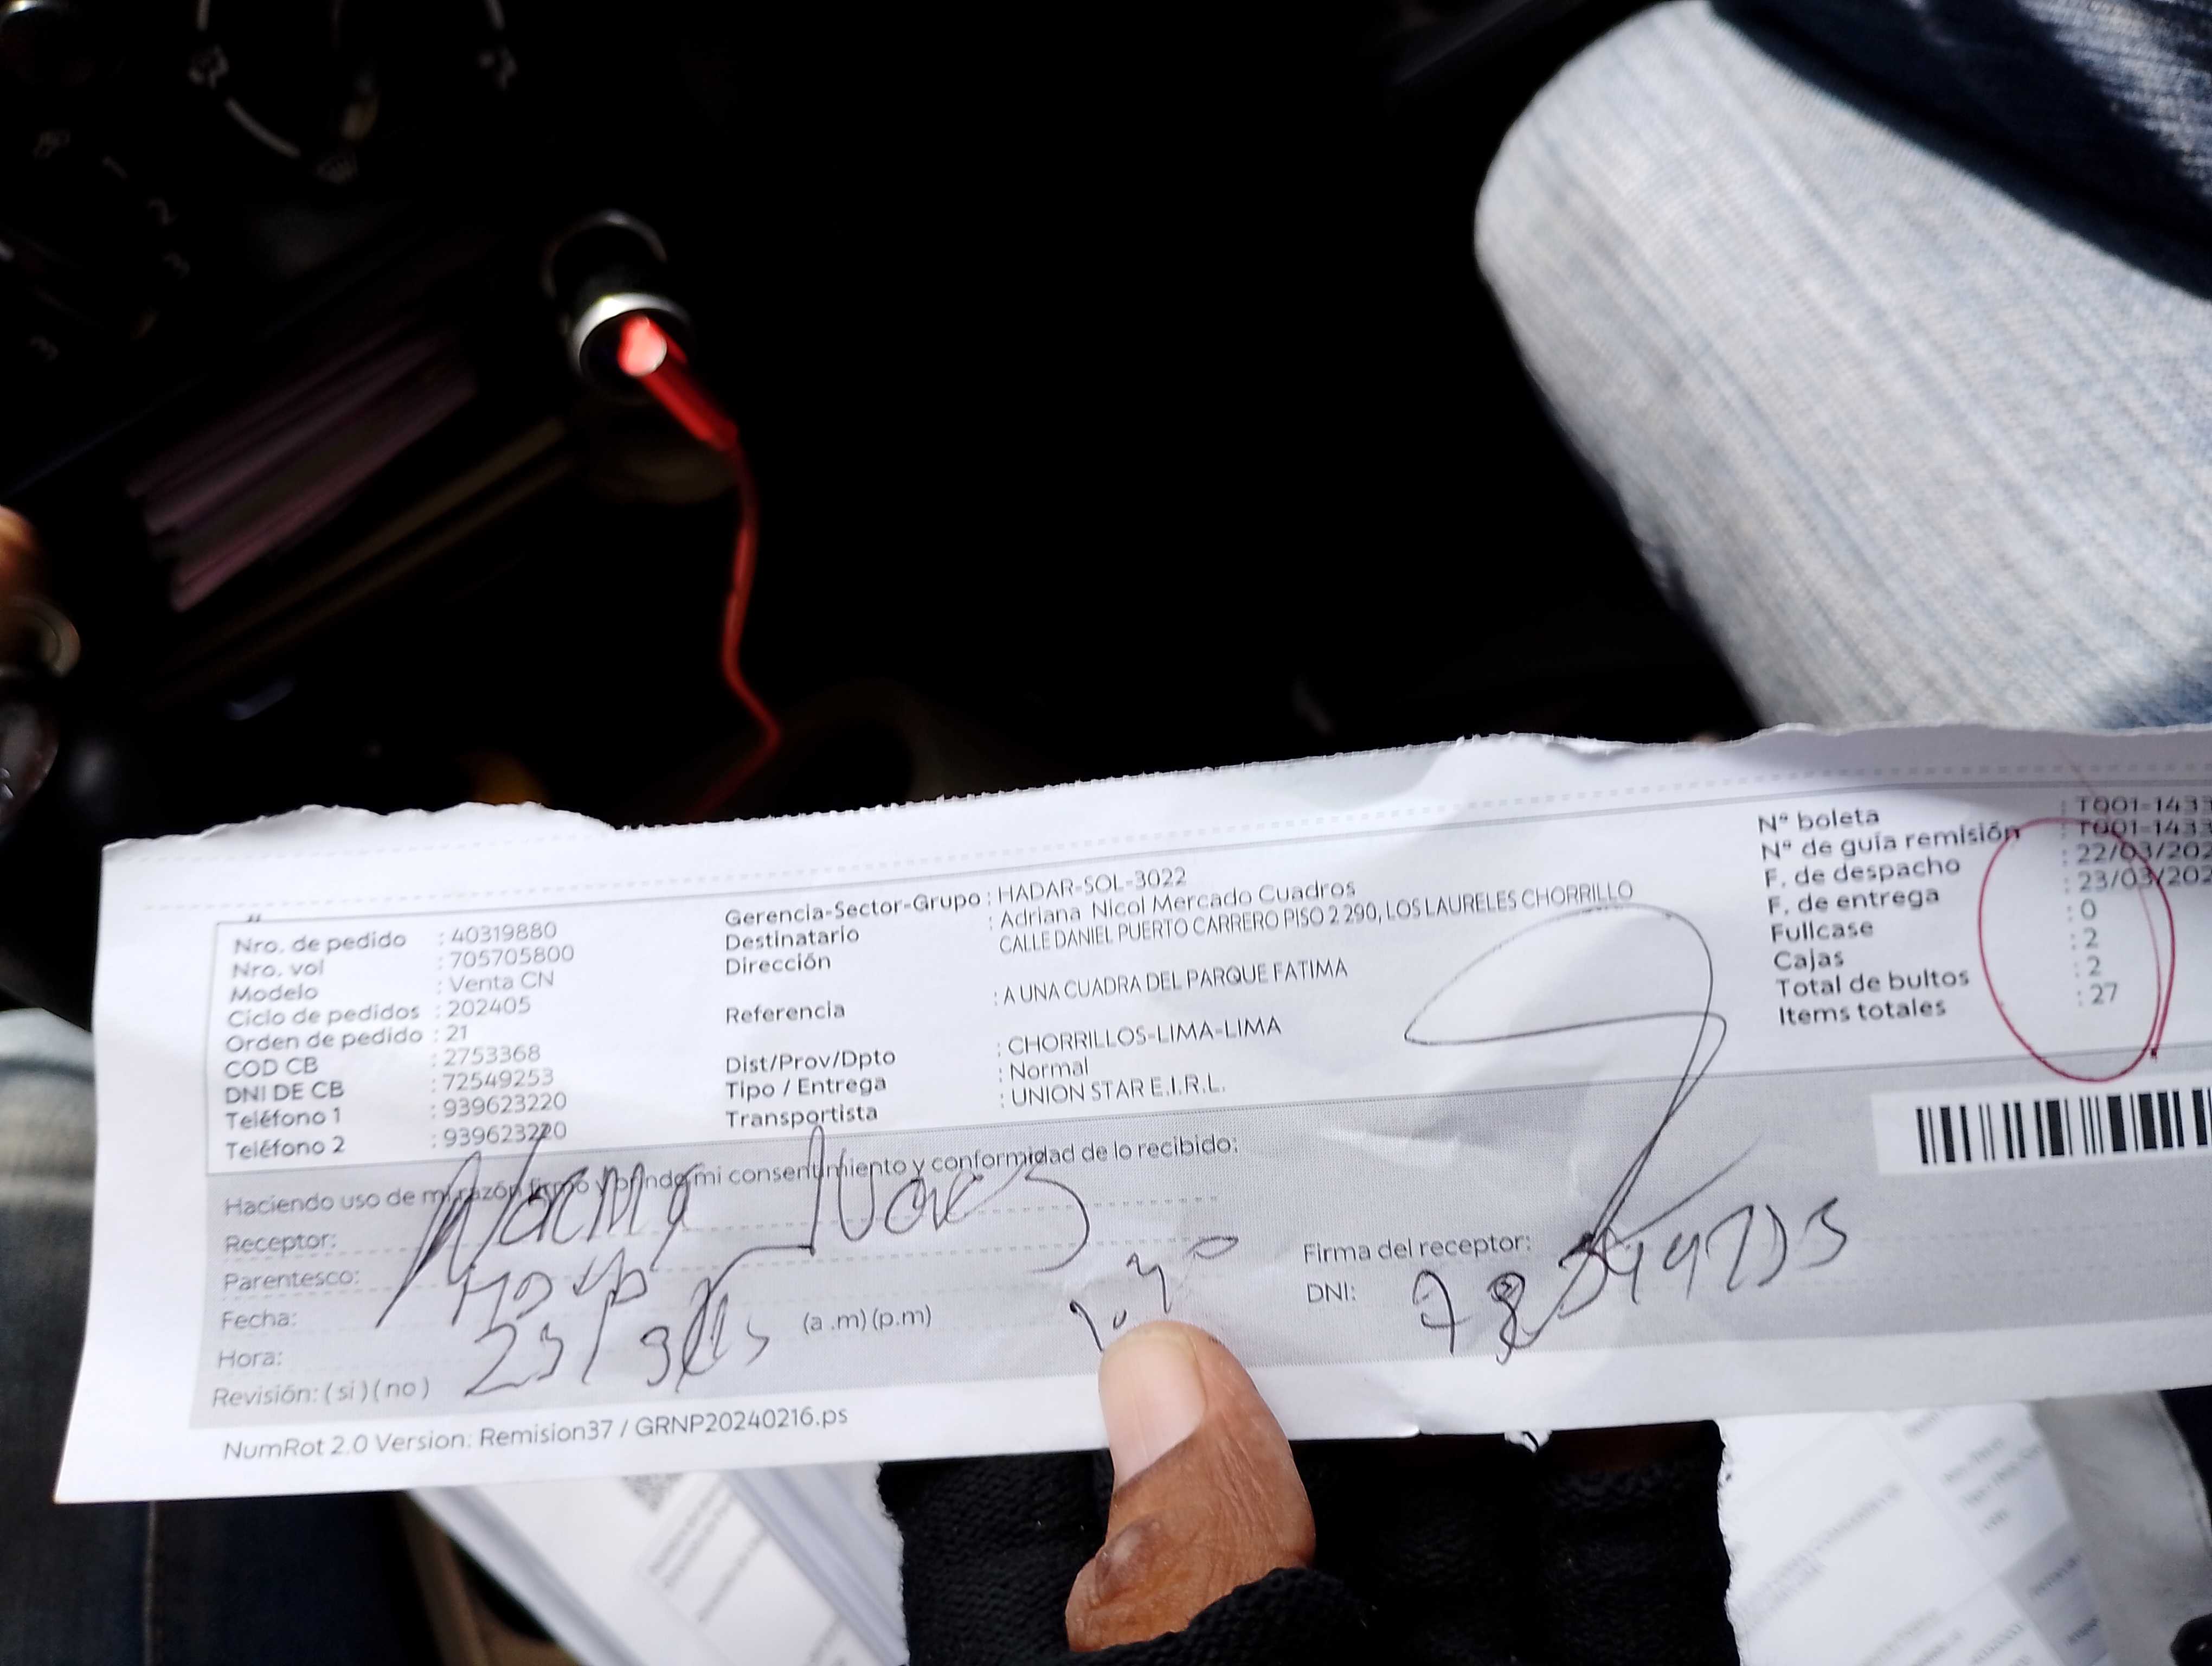 Nro. de pedido : 40319880
Nro. vol : 705705800
Modelo : Venta CN
Ciclo de pedidos : 202405
Orden de pedido : 21
COD CB : 2753368
DNI DE CB : 72549253
Teléfono 1 : 939623220
Teléfono 2 : 939623220
Gerencia-Sector-Grupo : HADAR-SOL-3022
Destinatario : Adriana Nicol Mercado Cuadros
Dirección CALLE DANIEL PUERTO CARRERO PISO 2 290, LOS LAURELES CHORRILLO
Referencia : A UNA CUADRA DEL PARQUE FATIMA
Dist/Prov/Dpto : CHORRILLOS-LIMA-LIMA
Tipo / Entrega : Normal
Transportista : UNION STAR E.I.R.L.
N° boleta : T001-1433
N° de guía remisión : T001-1433
F. de despacho : 22/03/202
F. de entrega : 23/03/202
Fullcase : 0
Cajas : 2
Total de bultos : 2
Items totales : 27
Haciendo uso de mi razón firmo y brindo mi consentimiento y conformidad de lo recibido:
Receptor:
Parentesco:
Fecha:
Hora: (a .m) (p.m)
Revisión: ( si ) ( no )
Firma del receptor:
DNI:
NumRot 2.0 Version: Remision37 / GRNP20240216.ps